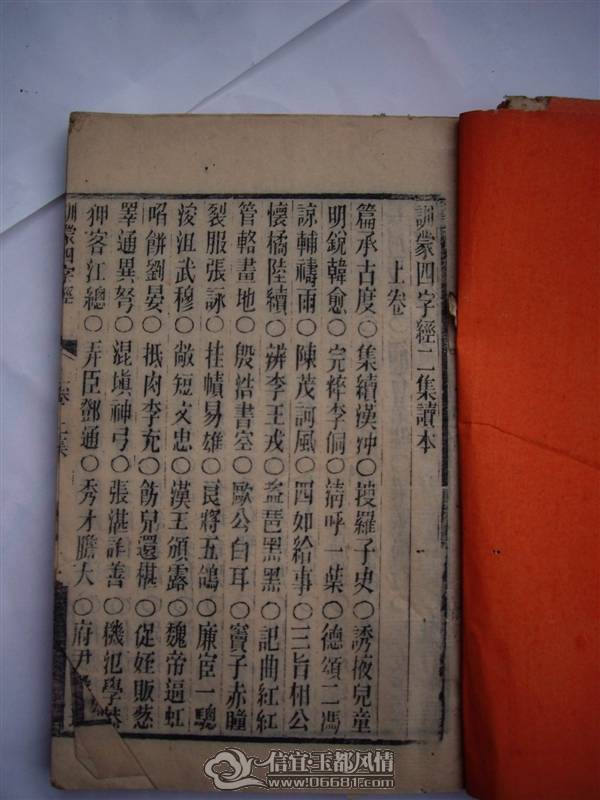 訓蒙四字經二集讀本
上卷
篇承古度○集續漢冲○搜羅子史○誘掖兒童
明銳韓愈○完粹李侗○清呼一葉○德頌二馮
諒輔禱雨○陳茂訶風○四如給事○三旨相公
懷橘陸續○辨李王戎○琶黑黑○記曲紅紅
管輅畫地○殷浩書空○歐公白耳○竇子赤瞳
裂服張詠○挂幘易雄○良將五鴿○廉宦一驄
浚沮武穆○敞短文忠○漢王頒露○魏帝逼虹
啗餅劉晏○抵肉李充○飭兒還椹○促姪販葱
通異弩○混塡神弓○張湛詐善○機汜學恭
狎客江總○弄臣鄧通○秀才膽大○府尹
訓蒙四字經
信宜·玉都风情
www.06681.com